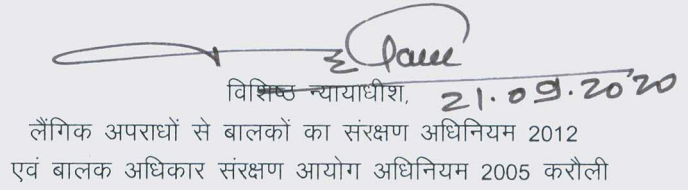 विशिष्ठ न्यायाधीश, 21.09.2020
लैंगिक अपराधों से बालकों का संरक्षण अधिनियम 2012
एवं बालक अधिकार संरक्षण आयोग अधिनियम 2005 करौली